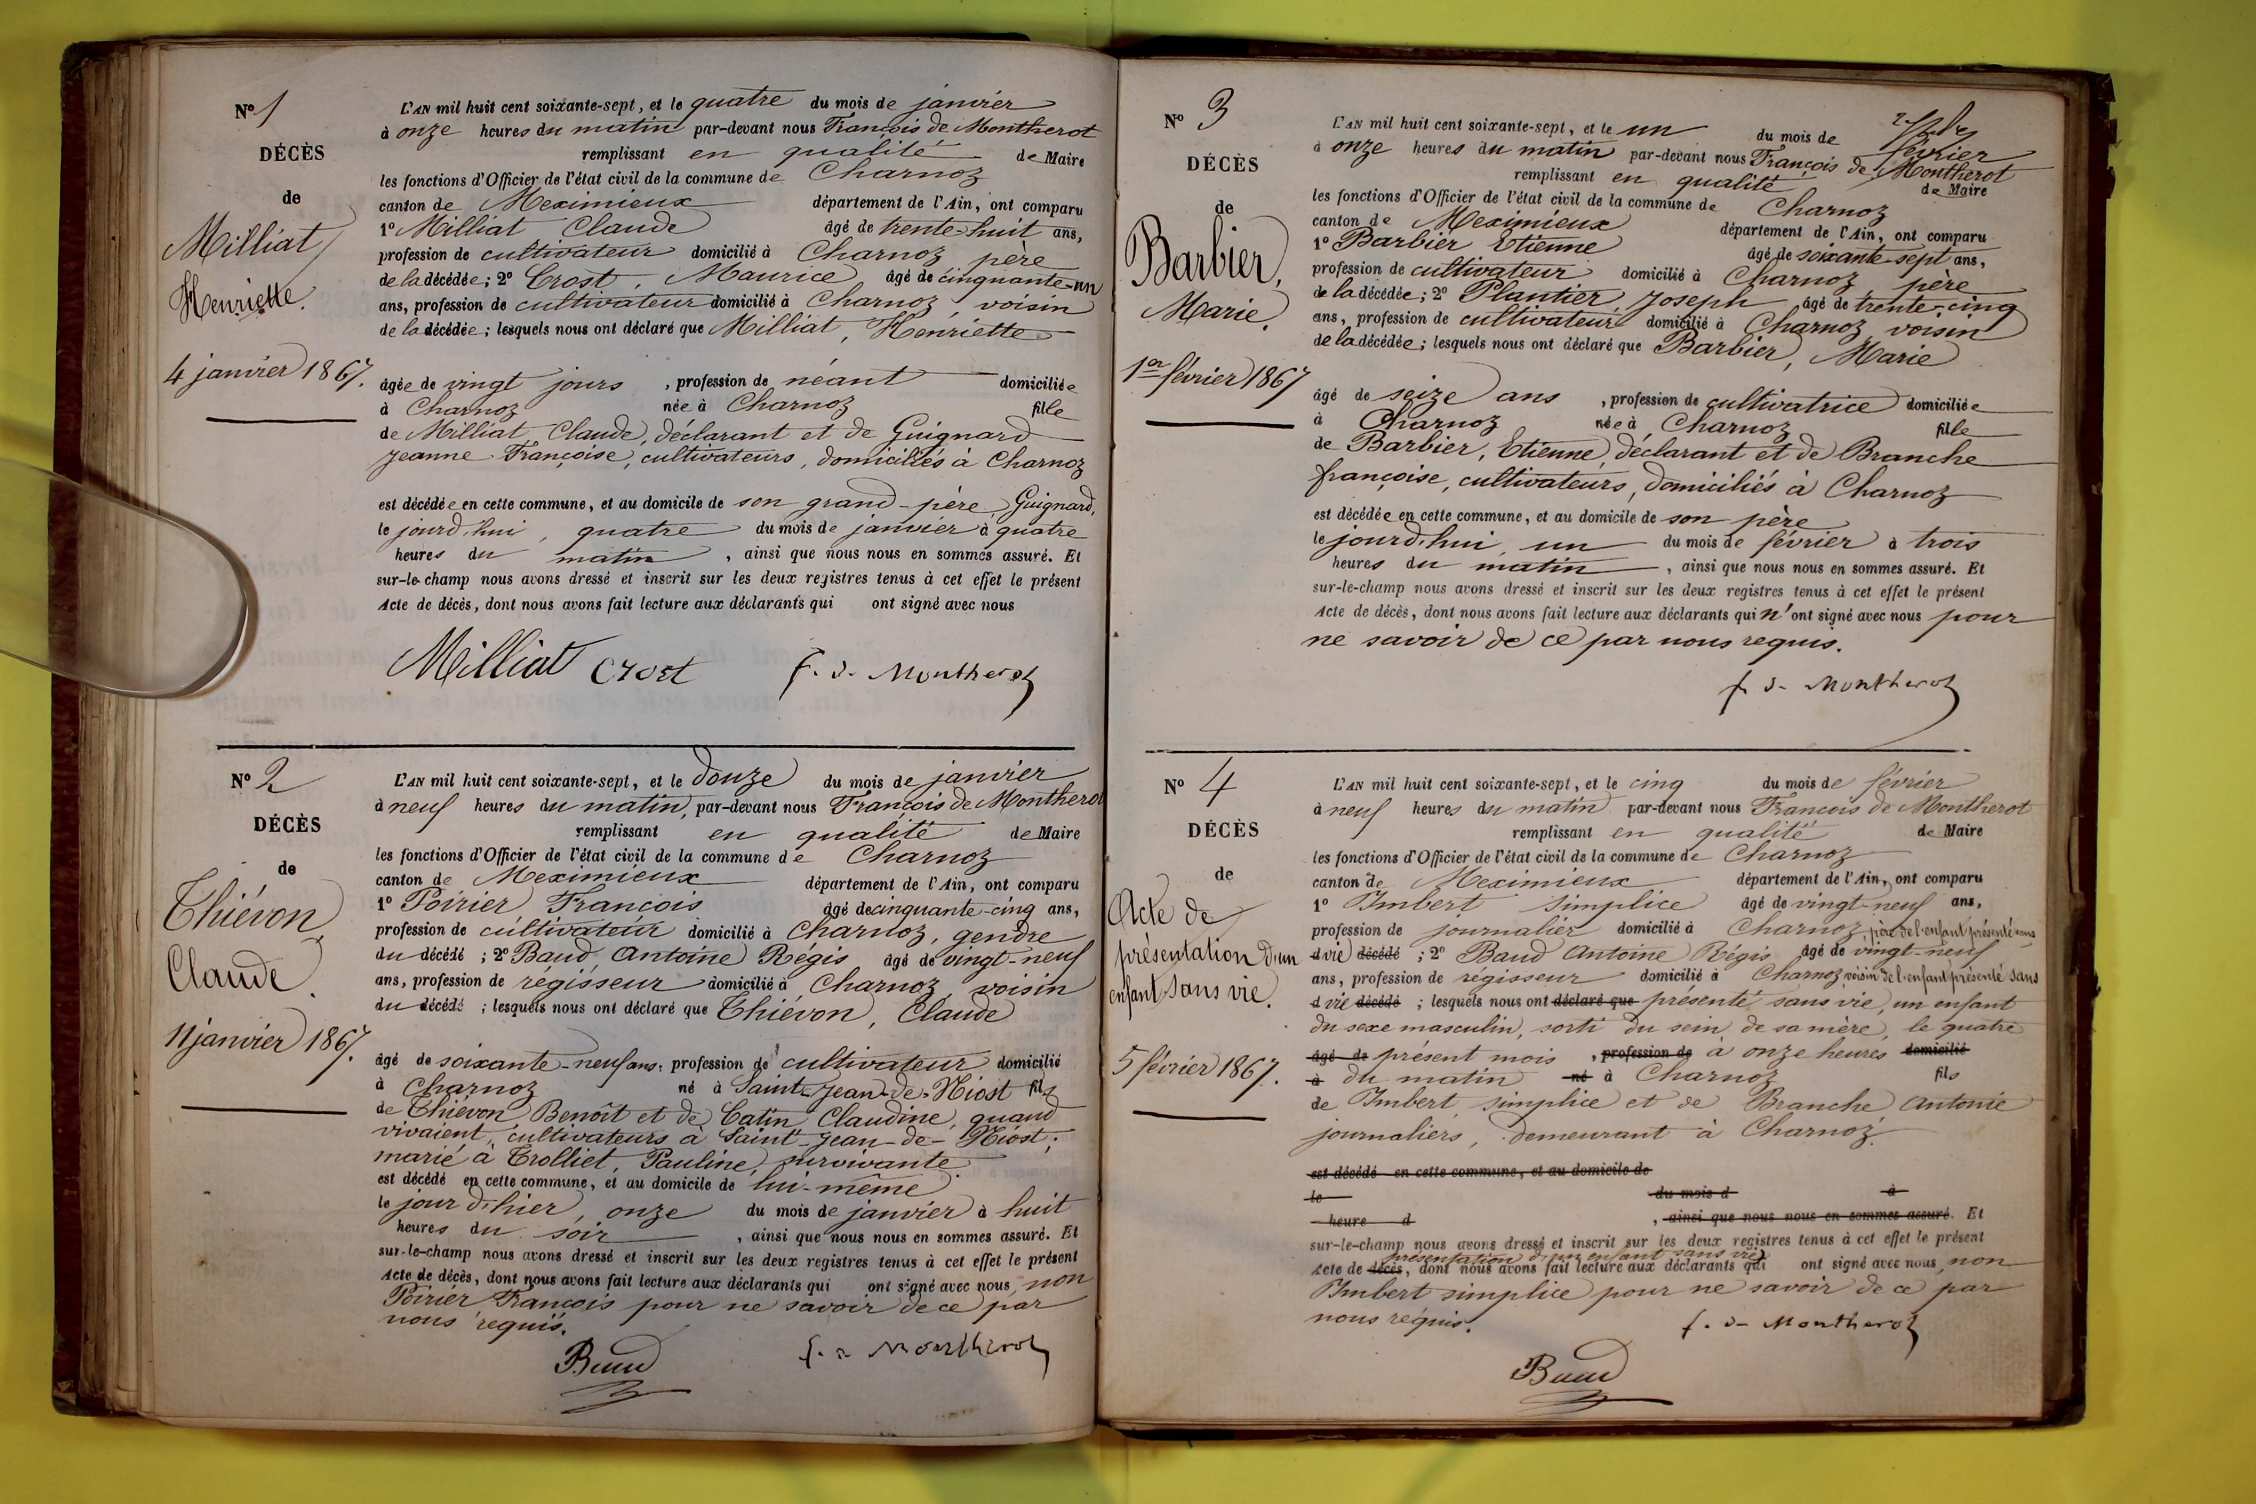 N° 1
DÉCÈS
de
Milliat
Henriette.
4 janvier 1867.
L'AN mil huit cent soixante-sept, et le quatre du mois de janvier
à onze heures du matin par-devant nous François de Montherot
remplissant en qualité de Maire
les fonctions d'Officier de l'état civil de la commune de Charnoz
canton de Meximieux département de l'Ain, ont comparu
1° Milliat Claude âgé de trente-huit ans,
profession de cultivateur domicilié à Charnoz père
de la décédée ; 2° Crost, Maurice âgé de cinquante-un
ans, profession de cultivateur domicilié à Charnoz, voisin
de la décédée ; lesquels nous ont déclaré que Milliat, Henriette
âgée de vingt jours, profession de néant domiciliée
à Charnoz née à Charnoz fille
de Milliat, Claude, déclarant et de Guignard
Jeanne Françoise, cultivateurs, domiciliés à Charnoz
est décédée en cette commune, et au domicile de son grand-père, Guignard,
le jourd'hui, quatre du mois de janvier à quatre
heures du matin, ainsi que nous nous en sommes assuré. Et
sur-le-champ nous avons dressé et inscrit sur les deux registres tenus à cet effet le présent
Acte de décès, dont nous avons fait lecture aux déclarants qui ont signé avec nous
Milliat Crost f. d. Montherot
N° 2
DÉCÈS
de
Thiévon,
Claude.
11 janvier 1867.
L'AN mil huit cent soixante-sept, et le douze du mois de janvier
à neuf heures du matin, par-devant nous François de Montherot
remplissant en qualité de Maire
les fonctions d'Officier de l'état civil de la commune de Charnoz
canton de Meximieux département de l'Ain, ont comparu
1° Poirier François âgé de cinquante-cinq ans,
profession de cultivateur domicilié à Charnoz, gendre
du décédé ; 2° Baud Antoine Régis âgé de vingt-neuf
ans, profession de régisseur domicilié à Charnoz voisin
du décédé ; lesquels nous ont déclaré que Thiévon, Claude
âgé de soixante-neuf ans, profession de cultivateur domicilié
à Charnoz né à Saint-Jean-de-Niost fils
de Thiévon Benoît et de Catin Claudine, quand
vivaient, cultivateurs à Saint-Jean-de-Niost;
marié à Trolliet, Pauline, survivante
est décédé en cette commune, et au domicile de lui-même
le jour d'hier, onze du mois de janvier à huit
heures du soir, ainsi que nous nous en sommes assuré. Et
sur-le-champ nous avons dressé et inscrit sur les deux registres tenus à cet effet le présent
Acte de décès, dont nous avons fait lecture aux déclarants qui ont signé avec nous, non
Poirier François pour ne savoir de ce par
nous requis.
Baud f. d. Montherot
N° 3
DÉCÈS
de
Barbier,
Marie.
1er février 1867
L'AN mil huit cent soixante-sept, et le un du mois de février
à onze heures du matin par-devant nous François de Montherot
remplissant en qualité de Maire
les fonctions d'Officier de l'état civil de la commune de Charnoz
canton de Meximieux département de l'Ain, ont comparu
1° Barbier Etienne âgé de soixante-sept ans,
profession de cultivateur domicilié à Charnoz, père
de la décédée ; 2° Plantier, Joseph, âgé de trente-cinq
ans, profession de cultivateur domicilié à Charnoz voisin
de la décédée ; lesquels nous ont déclaré que Barbier, Marie
âgé de seize ans, profession de cultivatrice domiciliée
à Charnoz née à Charnoz fille
de Barbier, Etienne, déclarant et de Branche
françoise, cultivateurs, domiciliés à Charnoz
est décédée en cette commune, et au domicile de son père
le jourd'hui, un du mois de février à trois
heures du matin, ainsi que nous nous en sommes assuré. Et
sur-le-champ nous avons dressé et inscrit sur les deux registres tenus à cet effet le présent
Acte de décès, dont nous avons fait lecture aux déclarants qui n'ont signé avec nous pour
ne savoir de ce par nous requis.
f. d. Montherot
N° 4
DÉCÈS
de
Acte de
présentation d'un
enfant sans vie.
5 février 1867.
L'AN mil huit cent soixante-sept, et le cinq du mois de février
à neuf heures du matin par-devant nous François de Montherot
remplissant en qualité de Maire
les fonctions d'Officier de l'état civil de la commune de Charnoz
canton de Meximieux département de l'Ain, ont comparu
1° Imbert Simplice âgé de vingt-neuf ans,
profession de journalier domicilié à Charnoz, père de l'enfant présenté sans
d vie décédé ; 2° Baud Antoine Régis âgé de vingt-neuf
ans, profession de régisseur domicilié à Charnoz, voisin de l'enfant présenté sans
d vie décédé ; lesquels nous ont déclaré que présenté sans vie, un enfant
du sexe masculin, sorti du sein de sa mère, le quatre
âgé de présent mois, profession de à onze heures domicilié
à du matin né à Charnoz fils
de Imbert, Simplice et de Branche Antonie
journaliers, demeurant à Charnoz.
est décédé en cette commune, et au domicile de
le du mois d à
heure d, ainsi que nous nous en sommes assuré. Et
sur-le-champ nous avons dressé et inscrit sur les deux registres tenus à cet effet le présent
présentation d'un enfant sans vie
Acte de décès, dont nous avons fait lecture aux déclarants qui ont signé avec nous, non
Imbert simplice pour ne savoir de ce par
nous requis.
f. d. Montherot
Baud